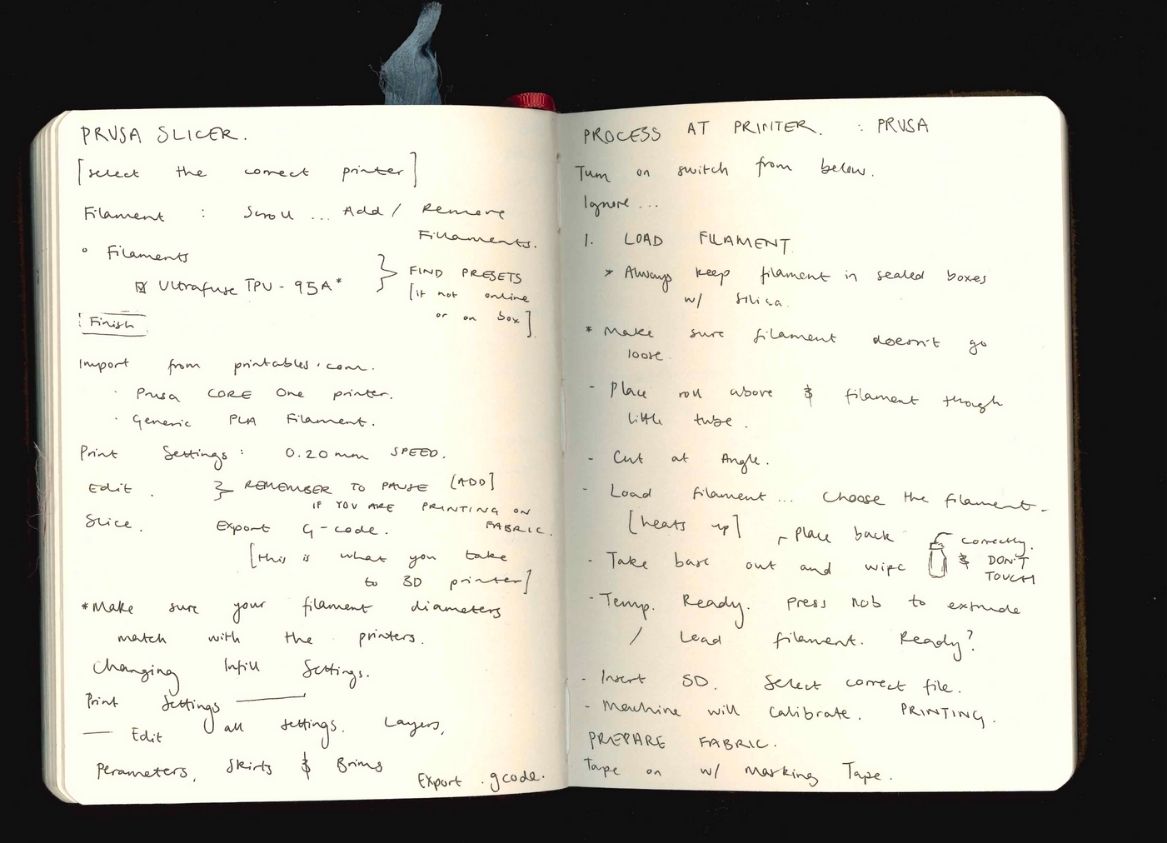 PRUSA SLICER.
[select the correct printer]
Filament : Scroll ... Add / Remove
Fillaments.
° Filaments
☒ Ultrafuse TPU - 95A*
} FIND PRESETS
[if not online
or on box]
Finish
Import from printables.com.
· Prusa CORE One printer.
· Generic PLA Filament.
Print Settings : 0.20mm SPEED.
Edit . } REMEMBER TO PAUSE [ADD]
IF YOU ARE PRINTING ON
FABRIC.
Slice. Export G-code.
[this is what you take
to 3D printer]
*Make sure your filament diameters
match with the printers.
Changing Infill Settings.
Print Settings ———
— Edit all settings. Layers,
Perameters, Skirts & Brims
Export .gcode.
PROCESS AT PRINTER. : PRUSA
Turn on switch from below.
Ignore ...
1. LOAD FILAMENT.
* Always keep filament in sealed boxes
w/ silica.
* Make sure filament doesn't go
loose.
- Place roll above & filament though
little tube.
- Cut at Angle.
- Load filament... Choose the filament -
[heats up]
Place back correctly.
- Take base out and wipe & DON'T
TOUCH
- Temp. Ready. press nob to extrude
/ Load filament. Ready?
- Insert SD. Select correct file.
- Machine will calibrate. PRINTING.
PREPARE FABRIC.
Tape on w/ Marking Tape.